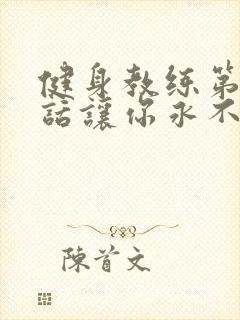 健身教练第
話讓你永不
陳首文